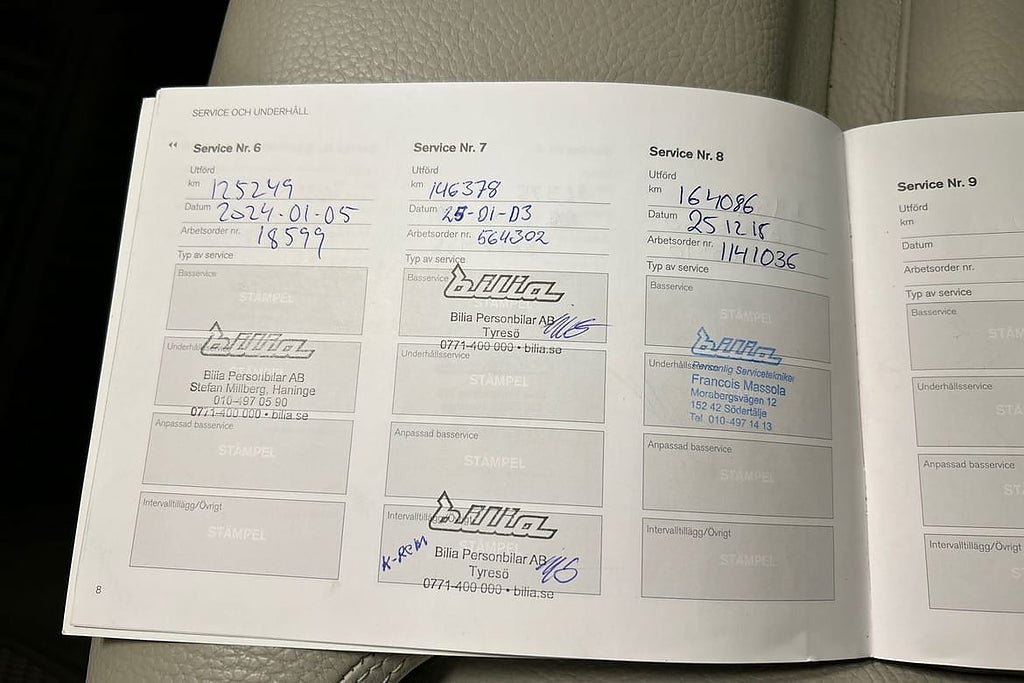 SERVICE OCH UNDERHÅLL
Service Nr. 6
Utförd
km 125249
Datum 2024-01-05
Arbetsorder nr. 18599
Typ av service
Basservice
STÄMPEL
bilia
Bilia Personbilar AB
Stefan Millberg, Haninge
010-497 05 90
0771-400 000 • bilia.se
Anpassad basservice
STÄMPEL
Intervalltillägg/Övrigt
STÄMPEL
8
Service Nr. 7
Utförd
km 146378
Datum 25-01-03
Arbetsorder nr. 564302
Typ av service
Basservice
bilia
Bilia Personbilar AB
Tyresö
0771-400 000 • bilia.se
Underhållsservice
STÄMPEL
Anpassad basservice
STÄMPEL
Intervalltillägg/Övrigt
bilia
K-rem
Bilia Personbilar AB
Tyresö
0771-400 000 • bilia.se
Service Nr. 8
Utförd
km 164086
Datum 251218
Arbetsorder nr. 1141036
Typ av service
Basservice
STÄMPEL
bilia
Underhållsservice
Personlig Servicetekniker
Francois Massola
Morabergsvägen 12
152 42 Södertälje
Tel. 010-497 14 13
Anpassad basservice
STÄMPEL
Intervalltillägg/Övrigt
STÄMPEL
Service Nr. 9
Utförd
km
Datum
Arbetsorder nr.
Typ av service
Basservice
Underhållsservice
Anpassad basservice
Intervalltillägg/Övrigt